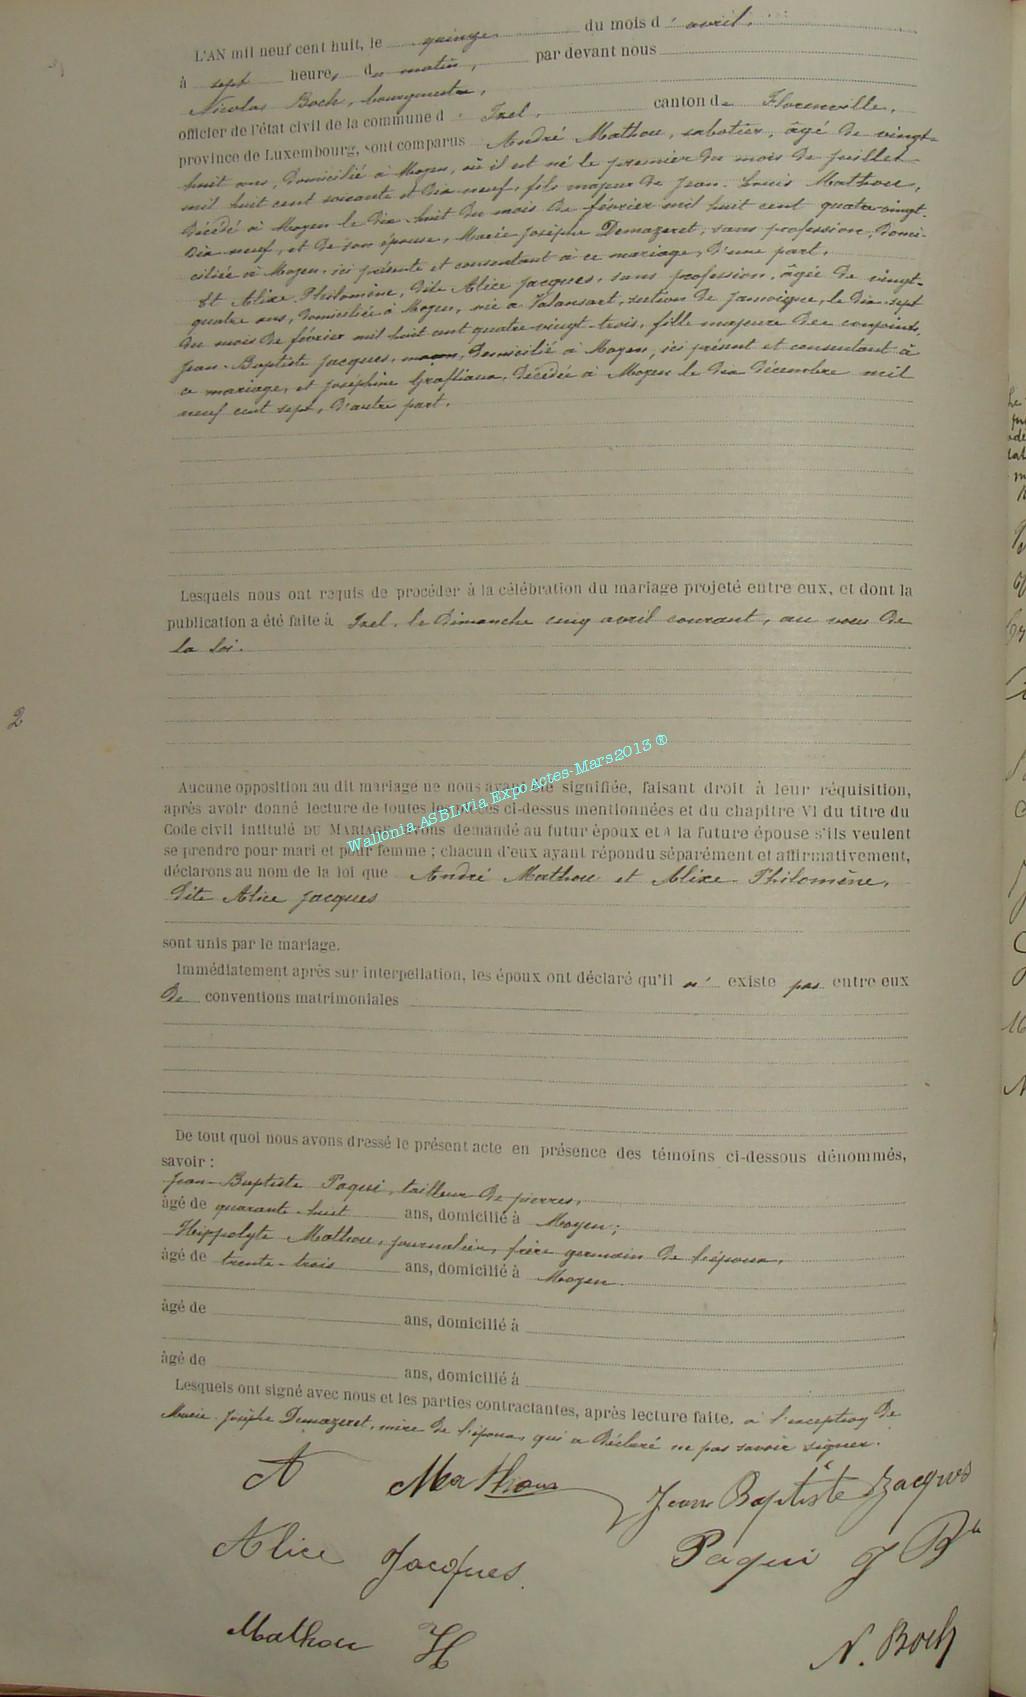 L'AN mil neuf cent huit, le quinze du mois d'avril,
à sept heures du matin, par devant nous
Nicolas Boch, bourgmestre,
officier de l'état civil de la commune d'Izel, canton de Florenville,
province de Luxembourg, sont comparus André Mathou, sabotier, âgé de vingt-
huit ans, domicilié à Moyen, où il est né le premier du mois de juillet
mil huit cent soixante et dix-neuf, fils majeur de Jean-Louis Mathou,
décédé à Moyen le dix-huit du mois de février mil huit cent quatre-vingt-
dix-neuf, et de son épouse, Marie Josèphe Demazeret, sans profession, domi-
ciliée à Moyen, ici présente et consentant à ce mariage, d'une part.
Et Alixe Philomène, dite Alice Jacques, sans profession, âgée de vingt-
quatre ans, domiciliée à Moyen, née à Valansart, section de Jamoigne, le dix-sept
du mois de février mil huit cent quatre-vingt-trois, fille majeure des conjoints,
Jean-Baptiste Jacques, maçon, domicilié à Moyen, ici présent et consentant à
ce mariage, et Joséphine décédée à Moyen le dix décembre mil
neuf cent sept, d'autre part.
Lesquels nous ont requis de procéder à la célébration du mariage projeté entre eux, et dont la
publication a été faite à Izel, le Dimanche cinq avril courant, au vœu de
la loi.
2
Aucune opposition au dit mariage ne nous ayant été signifiée, faisant droit à leur réquisition,
après avoir donné lecture de toutes les pièces ci-dessus mentionnées et du chapitre VI du titre du
Code civil intitulé DU MARIAGE, avons demandé au futur époux et à la future épouse s'ils veulent
se prendre pour mari et pour femme ; chacun d'eux ayant répondu séparément et affirmativement,
déclarons au nom de la loi que André Mathou et Alixe Philomène,
dite Alice Jacques
sont unis par le mariage.
Wallonia ASBL via Expo Actes-Mars2013 ®
Immédiatement après sur interpellation, les époux ont déclaré qu'il n'existe pas entre eux
de conventions matrimoniales
De tout quoi nous avons dressé le présent acte en présence des témoins ci-dessous dénommés,
savoir :
Jean-Baptiste Paqui, tailleur de pierres,
âgé de quarante-huit ans, domicilié à Moyen ;
Hippolyte Mathou, journalier, frère germain de l'époux,
âgé de trente-trois ans, domicilié à Moyen.
âgé de ans, domicilié à
âgé de ans, domicilié à
Lesquels ont signé avec nous et les parties contractantes, après lecture faite, à l'exception de
Marie-Josèphe Demazeret, mère de l'époux, qui a déclaré ne pas savoir signer.
A Mathou Jean Baptiste Jacques
Alice Jacques Paqui J Bte
Mathou H N. Boch